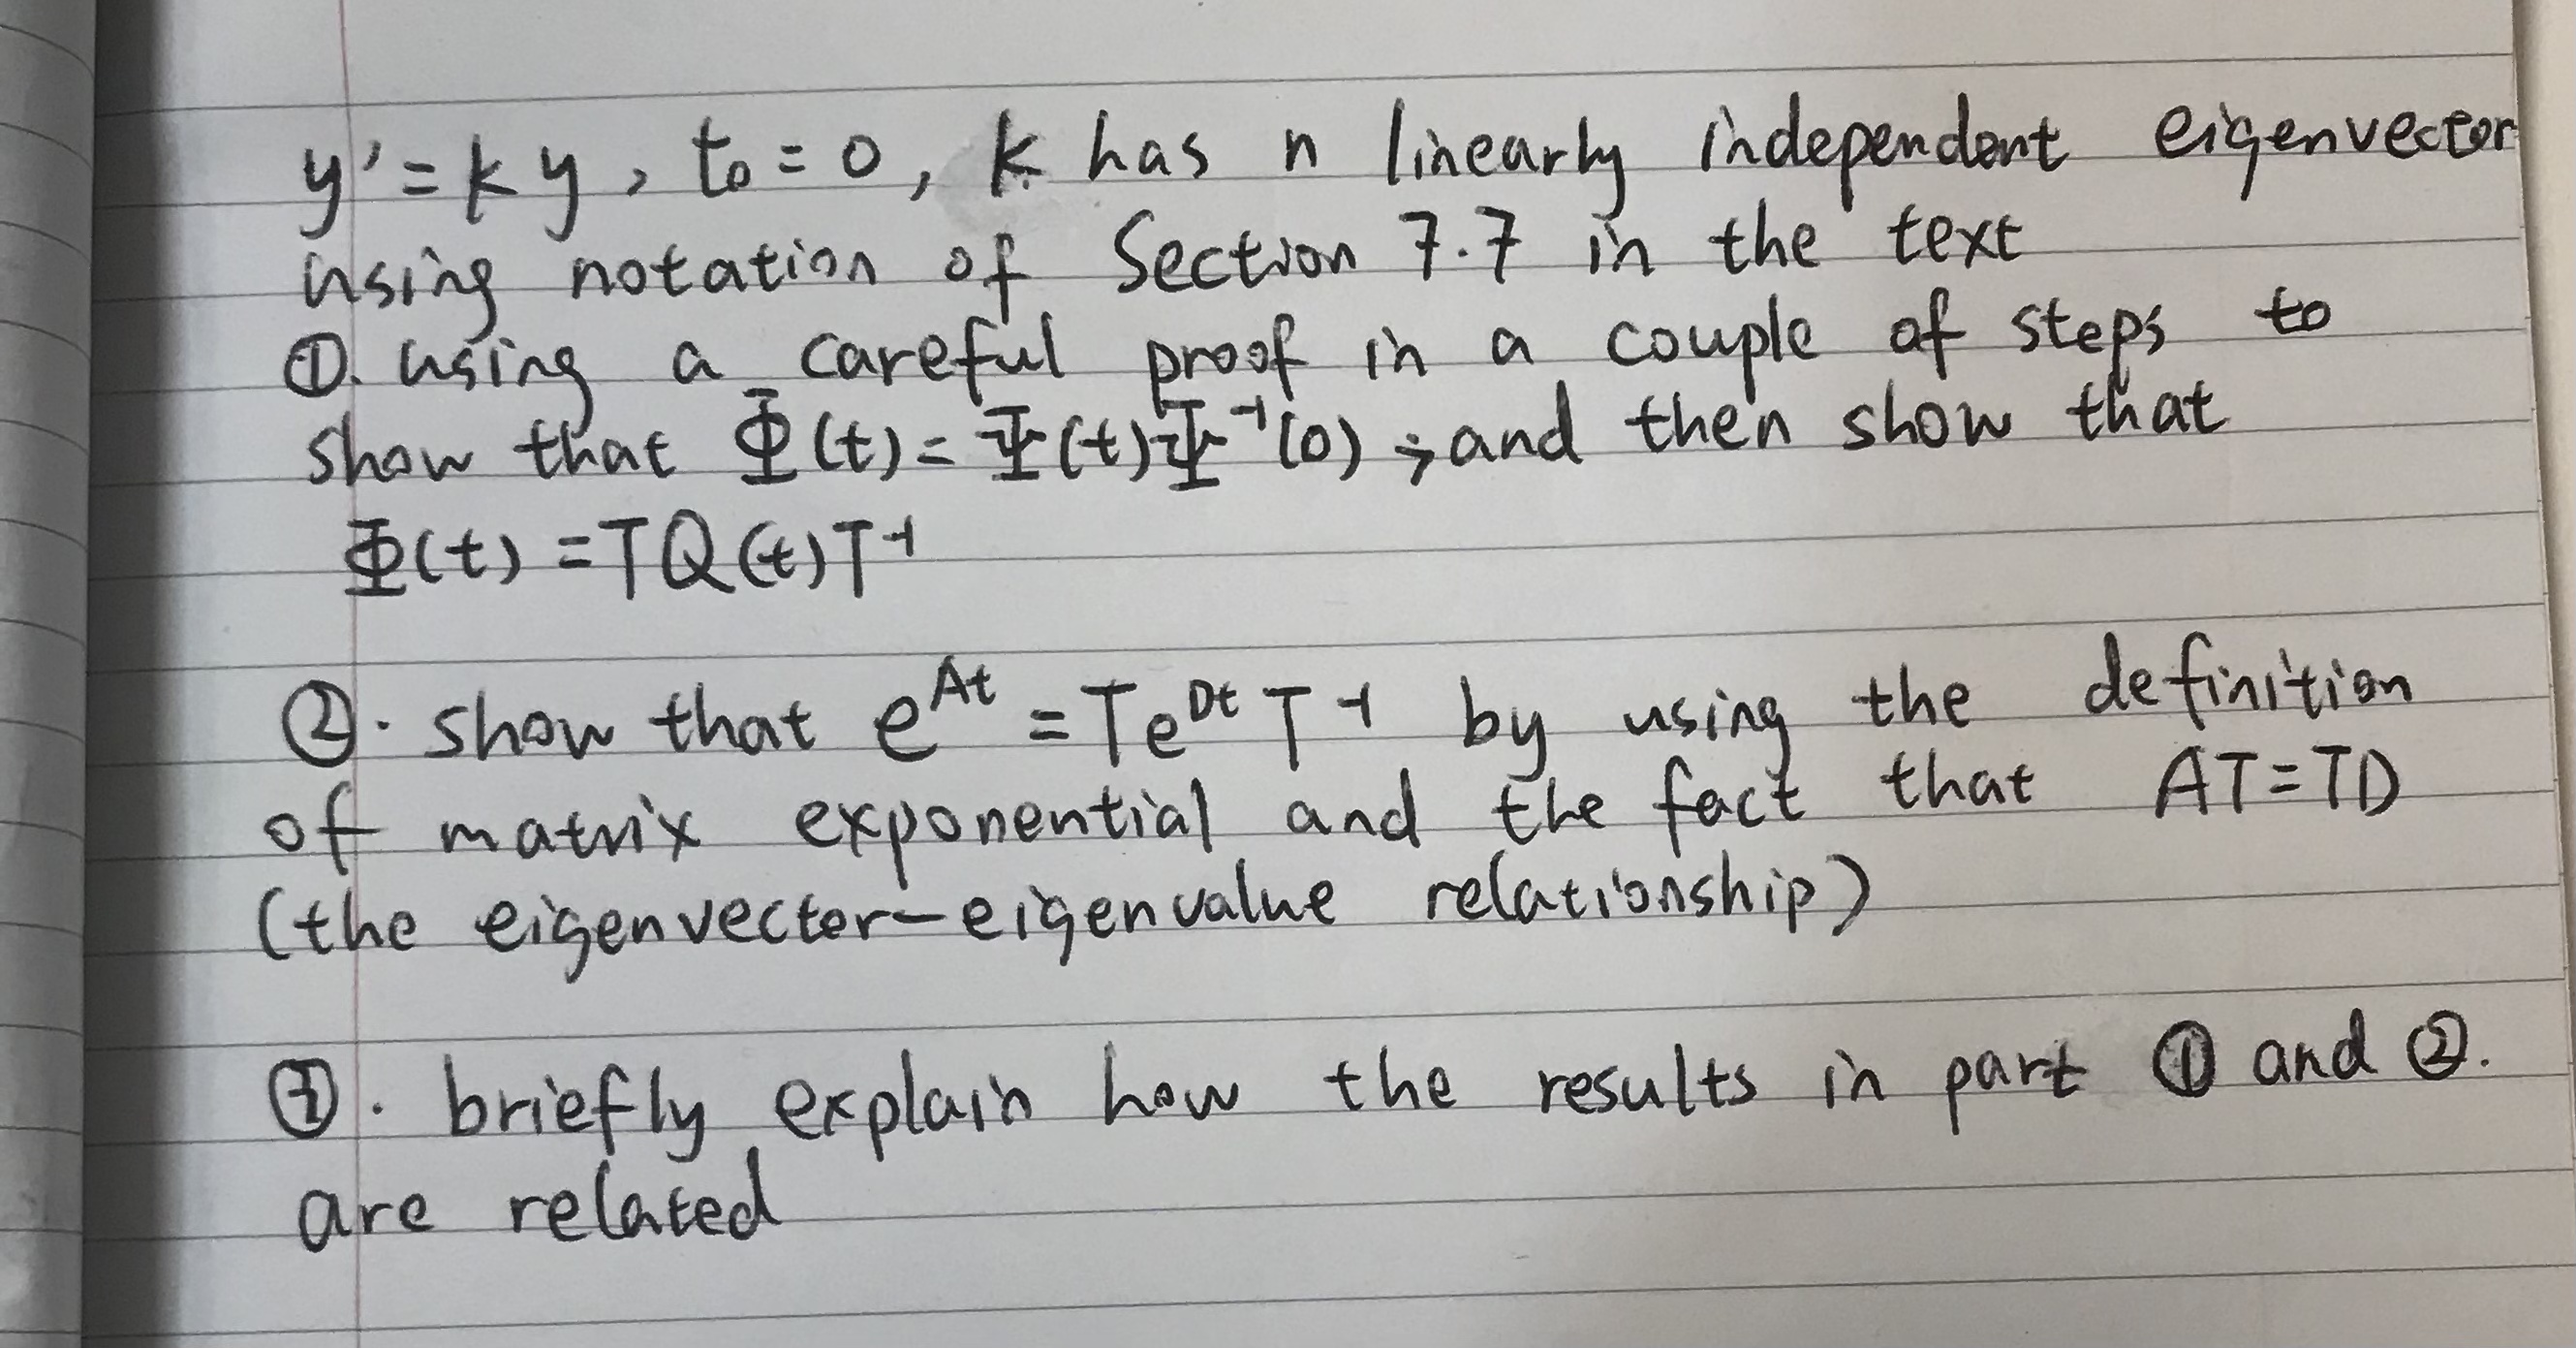 y'=ky, t₀=0, k has n linearly independent eigenvector
using notation of Section 7.7 in the text
①. using a careful proof in a couple of steps to
show that Φ(t)=Ψ(t)Ψ⁻¹(0); and then show that
Φ(t)=TQ(t)T⁻¹
②. show that e^{At}=Te^{Dt}T⁻¹ by using the definition
of matrix exponential and the fact that AT=TD
(the eigenvector-eigenvalue relationship)
③. briefly explain how the results in part ① and ②.
are related